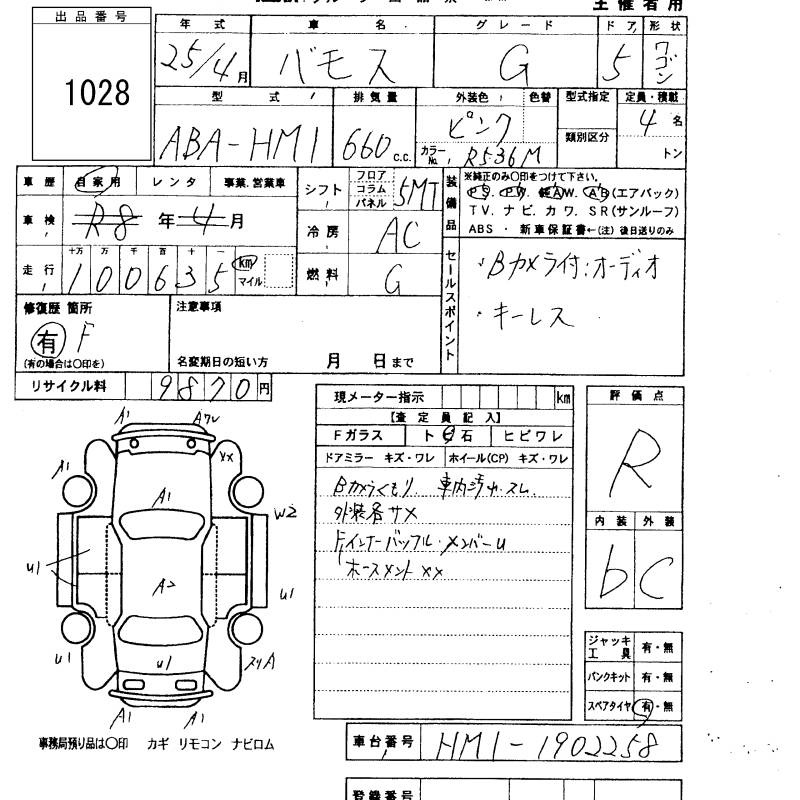 主催者用
出品番号
1028
年式 車名 グレード ドア 形状
25/4月 バモス G 5 ワゴン
型式 排気量 外装色 色替 型式指定 定員・積載
類別区分
ABA-HM1 660 c.c. ピンク カラーNo. R536M 4名
トン
車歴 自家用 レンタ 事業.営業車
車検 R8年4月
走行 十万 万 千 百 十 一
100635 km マイル
シフト フロア コラム パネル 5MT
冷房 AC
燃料 G
装備品 ※純正のみ〇印をつけて下さい。
PS. PW. 純AW. AB(エアバック)
TV. ナビ. カワ. SR(サンルーフ)
ABS ・ 新車保証書←(注) 後日送りのみ
セールスポイント
・Bカメラ付:オーディオ
・キーレス
修復歴 箇所
有 F
(有の場合は〇印を)
注意事項
名変期日の短い方 月 日まで
リサイクル料 9870円
現メーター指示 km
【査定員記入】
Fガラス ト石 ヒビワレ
ドアミラー キズ・ワレ ホイール(CP) キズ・ワレ
Bカメラくもり. 車内汚れ.スレ.
外装各サメ
Fインナーバッフル・メンバーu
ホースメント xx
評価点
R
内装 外装
b C
ジャッキ工具 有・無
パンクキット 有・無
スペアタイヤ 有・無
A1 Aワレ
A1 xx
A1
W2
u1 A2 u1
u1 u1 スリA
A1 A1
事務局預り品は〇印 カギ リモコン ナビロム
車台番号 HM1-1902258
登録番号